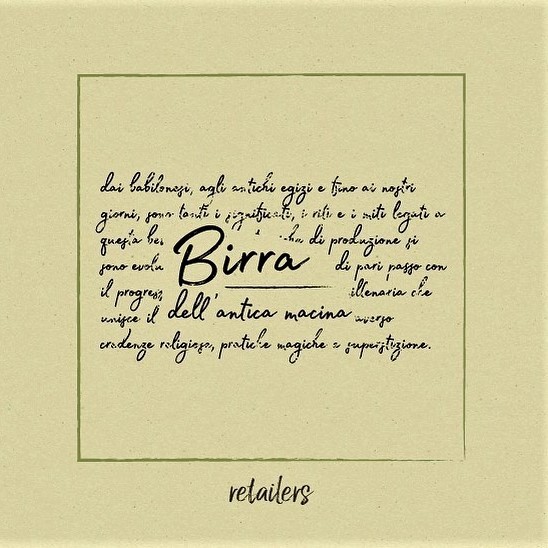 dai babilonesi, agli antichi egizi e fino ai nostri
giorni, sono tanti i significati, i riti e i miti legati a
questa di produzione si
sono di pari passo con
Birra
il che
unisce il
dell'antica macina
credenze religiose, pratiche magiche e superstizione.
retailers